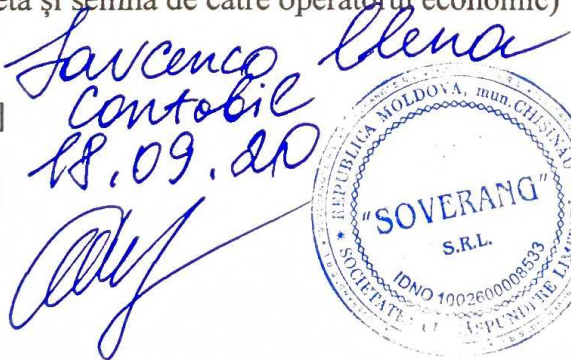 eta și semna de către operatorul economic)
Savcenco Elena
contabil
]
18.09.20
REPUBLICA MOLDOVA, mun. CHIȘINĂU
"SOVERANG"
S.R.L.
IDNO 1002600008533
* SOCIETATE CU RĂSPUNDERE